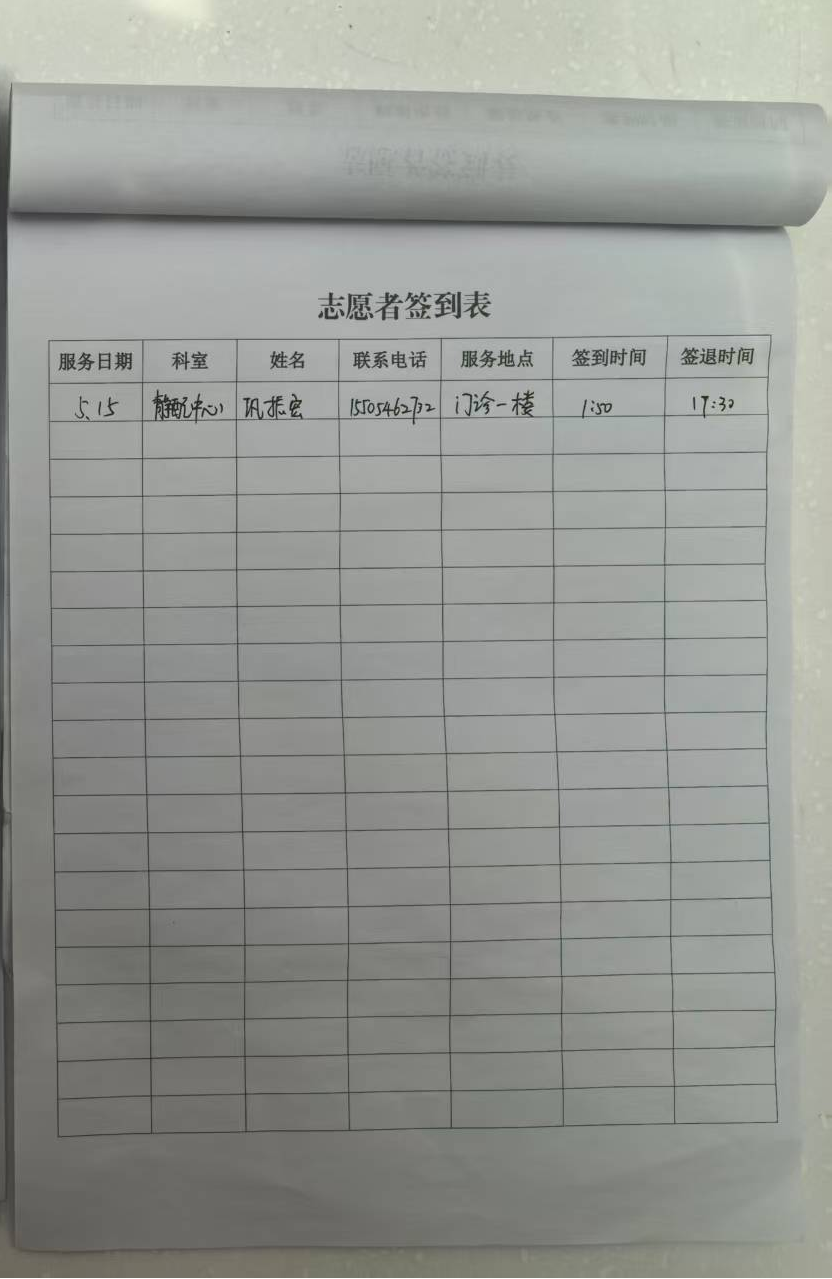 志愿者签到表
服务日期 科室 姓名 联系电话 服务地点 签到时间 签退时间
5.15 静配中心 巩振宏 15505462732 门诊一楼 1:50 17:30